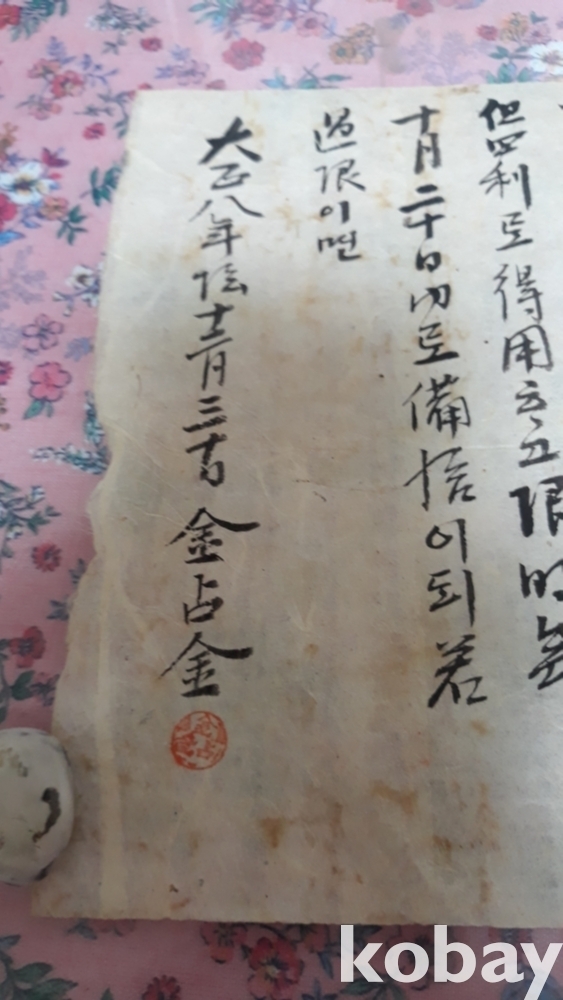 但四利로得用ᄒᆞ고限
十月二十日內로備給이되若
過限이면
大正八年陰十二月三十日 金占金
kobay